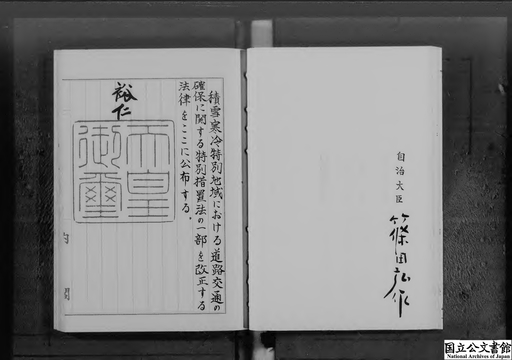 自治大臣
篠田弘作
積雪寒冷特別地域における道路交通の
確保に関する特別措置法の一部を改正する
法律をここに公布する。
裕仁
天皇
御璽
内閣
国立公文書館
National Archives of Japan